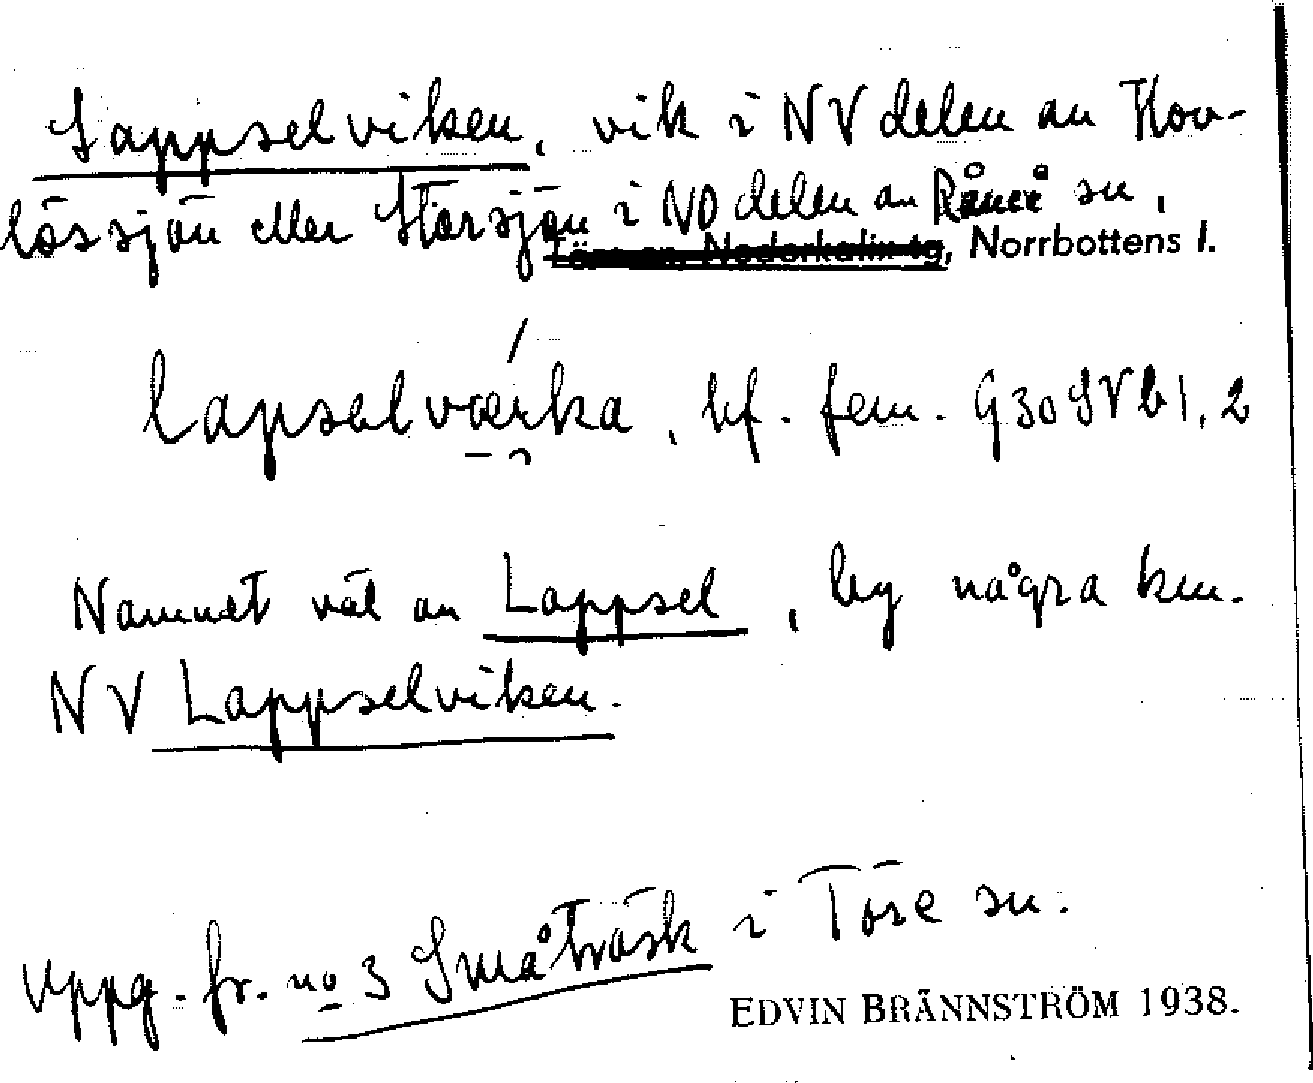 Lappselviken, vik i NV delen av Hov-
lössjön eller Storsjön i NO delen av Råneå sn,
Norrbottens l.
lapselvæika, bf. fem. G30SVb1,2
Namnet väl av Lappsel, by några km.
NV Lappselviken.
Uppg. fr. no 3 Småträsk i Töre sn.
EDVIN BRÄNNSTRÖM 1938.